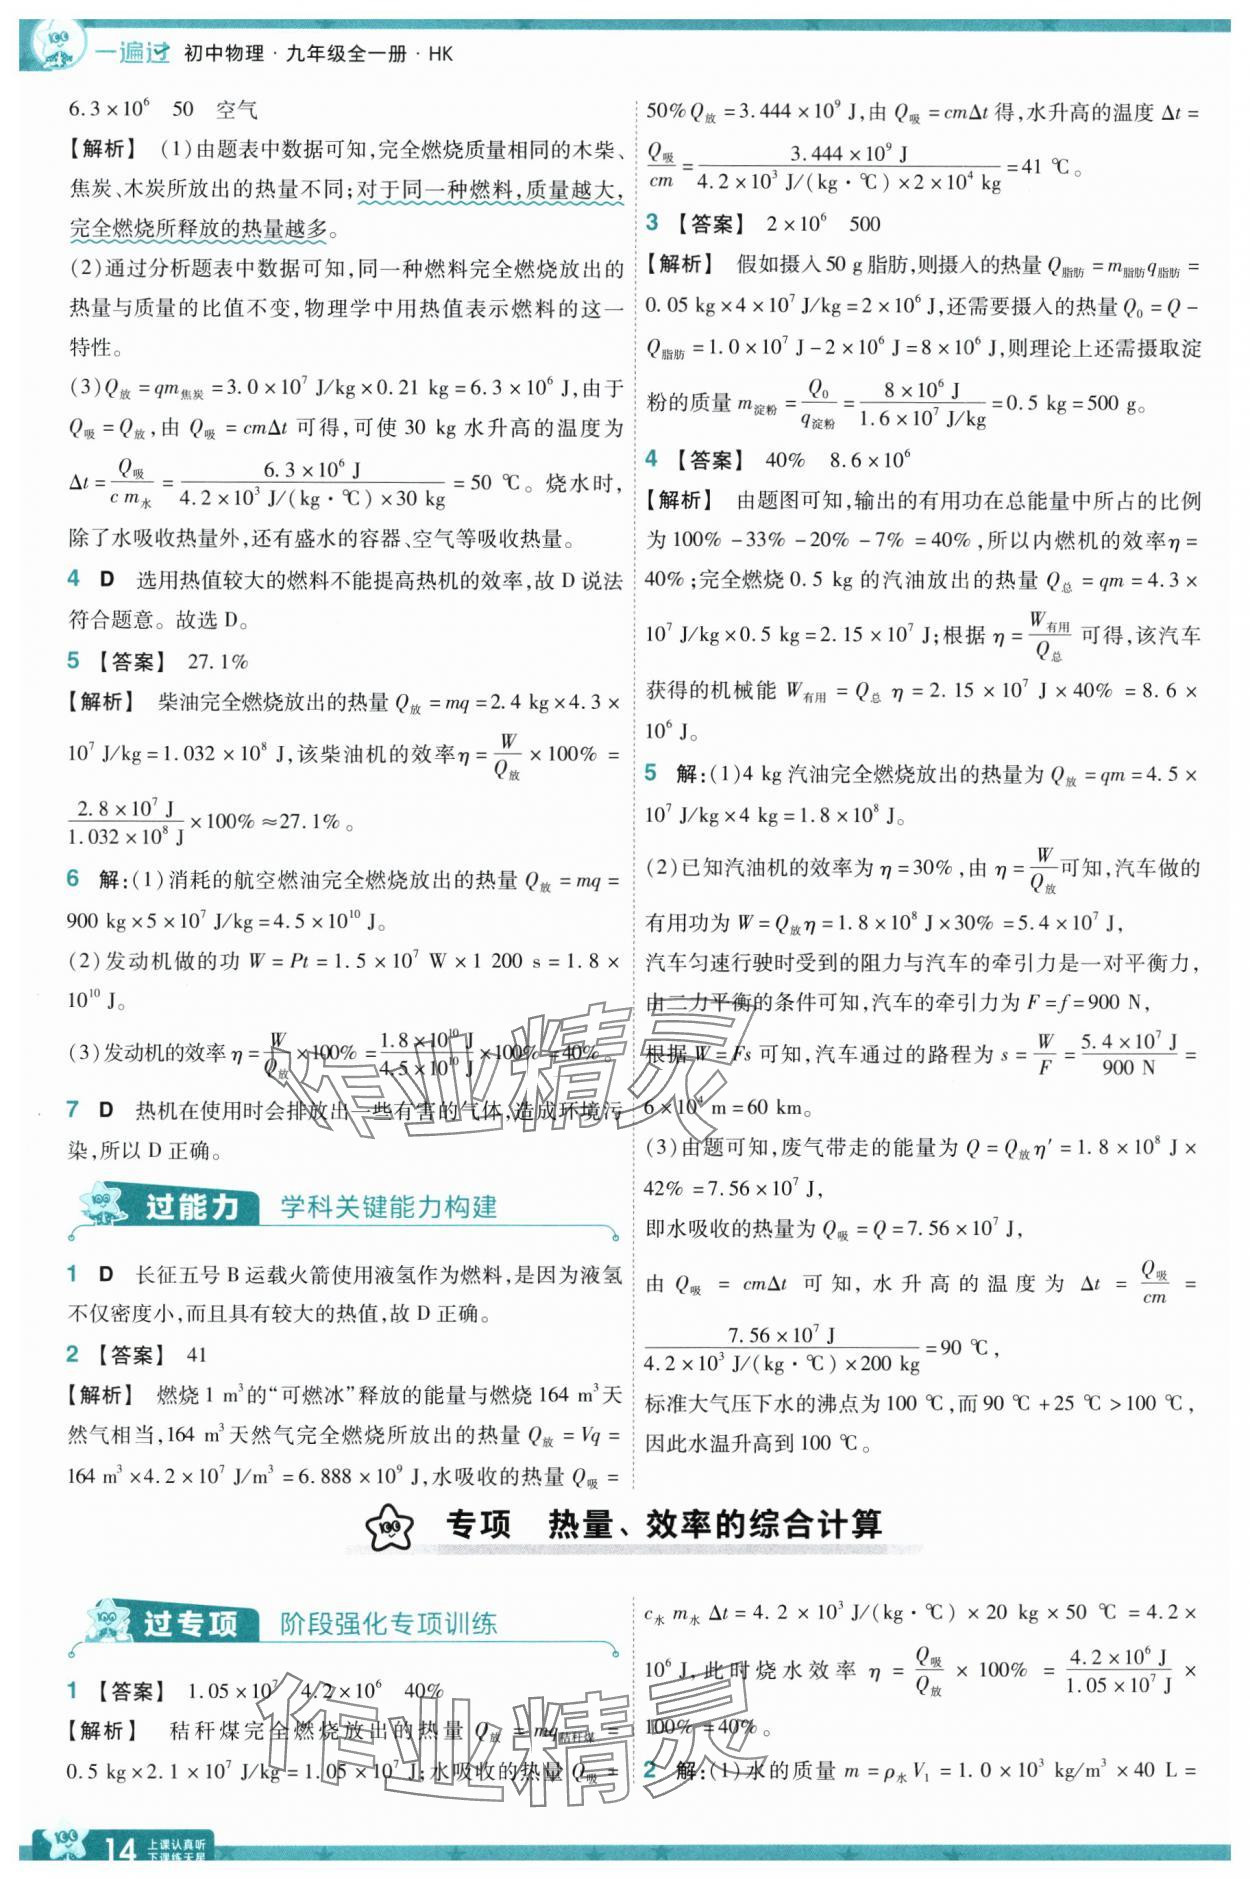 一遍过 初中物理·九年级全一册·HK
6.3×10⁶ 50 空气
【解析】 (1)由题表中数据可知,完全燃烧质量相同的木柴、
焦炭、木炭所放出的热量不同;对于同一种燃料,质量越大,
完全燃烧所释放的热量越多。
(2)通过分析题表中数据可知,同一种燃料完全燃烧放出的
热量与质量的比值不变,物理学中用热值表示燃料的这一
特性。
(3)Q放=qm焦炭=3.0×10⁷ J/kg×0.21 kg=6.3×10⁶ J,由于
Q吸=Q放,由 Q吸=cmΔt 可得,可使 30 kg 水升高的温度为
Δt=Q吸/(c m水)=6.3×10⁶ J/(4.2×10³ J/(kg·℃)×30 kg)=50 ℃。烧水时,
除了水吸收热量外,还有盛水的容器、空气等吸收热量。
4 D 选用热值较大的燃料不能提高热机的效率,故 D 说法
符合题意。故选 D。
5 【答案】 27.1%
【解析】 柴油完全燃烧放出的热量 Q放=mq=2.4 kg×4.3×
10⁷ J/kg=1.032×10⁸ J,该柴油机的效率η=W/Q放×100%=
2.8×10⁷ J/1.032×10⁸ J×100%≈27.1%。
6 解:(1)消耗的航空燃油完全燃烧放出的热量 Q放=mq=
900 kg×5×10⁷ J/kg=4.5×10¹⁰ J。
(2)发动机做的功 W=Pt=1.5×10⁷ W×1 200 s=1.8×
10¹⁰ J。
(3)发动机的效率 η=W/Q放×100%=1.8×10¹⁰ J/4.5×10¹⁰ J×100%=40%。
7 D 热机在使用时会排放出一些有害的气体,造成环境污
染,所以 D 正确。
过能力 学科关键能力构建
1 D 长征五号 B 运载火箭使用液氢作为燃料,是因为液氢
不仅密度小,而且具有较大的热值,故 D 正确。
2 【答案】 41
【解析】 燃烧 1 m³的“可燃冰”释放的能量与燃烧 164 m³天
然气相当,164 m³天然气完全燃烧所放出的热量 Q放=Vq=
164 m³×4.2×10⁷ J/m³=6.888×10⁹ J,水吸收的热量 Q吸=
50%Q放=3.444×10⁹ J,由 Q吸=cmΔt 得,水升高的温度 Δt=
Q吸/cm=3.444×10⁹ J/(4.2×10³ J/(kg·℃)×2×10⁴ kg)=41 ℃。
3 【答案】 2×10⁶ 500
【解析】 假如摄入 50 g 脂肪,则摄入的热量 Q脂肪=m脂肪q脂肪=
0.05 kg×4×10⁷ J/kg=2×10⁶ J,还需要摄入的热量 Q₀=Q-
Q脂肪=1.0×10⁷ J-2×10⁶ J=8×10⁶ J,则理论上还需摄取淀
粉的质量 m淀粉=Q₀/q淀粉=8×10⁶ J/1.6×10⁷ J/kg=0.5 kg=500 g。
4 【答案】 40% 8.6×10⁶
【解析】 由题图可知,输出的有用功在总能量中所占的比例
为 100%-33%-20%-7%=40%,所以内燃机的效率η=
40%;完全燃烧 0.5 kg 的汽油放出的热量 Q总=qm=4.3×
10⁷ J/kg×0.5 kg=2.15×10⁷ J;根据 η=W有用/Q总 可得,该汽车
获得的机械能 W有用=Q总 η=2.15×10⁷ J×40%=8.6×
10⁶ J。
5 解:(1)4 kg 汽油完全燃烧放出的热量为 Q放=qm=4.5×
10⁷ J/kg×4 kg=1.8×10⁸ J。
(2)已知汽油机的效率为 η=30%,由 η=W/Q放可知,汽车做的
有用功为 W=Q放η=1.8×10⁸ J×30%=5.4×10⁷ J,
汽车匀速行驶时受到的阻力与汽车的牵引力是一对平衡力,
由二力平衡的条件可知,汽车的牵引力为 F=f=900 N,
根据 W=Fs 可知,汽车通过的路程为 s=W/F=5.4×10⁷ J/900 N=
6×10⁴ m=60 km。
(3)由题可知,废气带走的能量为 Q=Q放η′=1.8×10⁸ J×
42%=7.56×10⁷ J,
即水吸收的热量为 Q吸=Q=7.56×10⁷ J,
由 Q吸=cmΔt 可知,水升高的温度为 Δt=Q吸/cm=
7.56×10⁷ J/(4.2×10³ J/(kg·℃)×200 kg)=90 ℃,
标准大气压下水的沸点为 100 ℃,而 90 ℃+25 ℃>100 ℃,
因此水温升高到 100 ℃。
专项 热量、效率的综合计算
过专项 阶段强化专项训练
1 【答案】 1.05×10⁷ 4.2×10⁶ 40%
【解析】 秸秆煤完全燃烧放出的热量 Q放=mq秸秆煤=
0.5 kg×2.1×10⁷ J/kg=1.05×10⁷ J;水吸收的热量 Q吸=
c水 m水 Δt=4.2×10³ J/(kg·℃)×20 kg×50 ℃=4.2×
10⁶ J,此时烧水效率 η=Q吸/Q放×100%=4.2×10⁶ J/1.05×10⁷ J×
100%=40%。
2 解:(1)水的质量 m=ρ水V₁=1.0×10³ kg/m³×40 L=
作业精灵
作业精灵
14 上课认真听
下课练天星